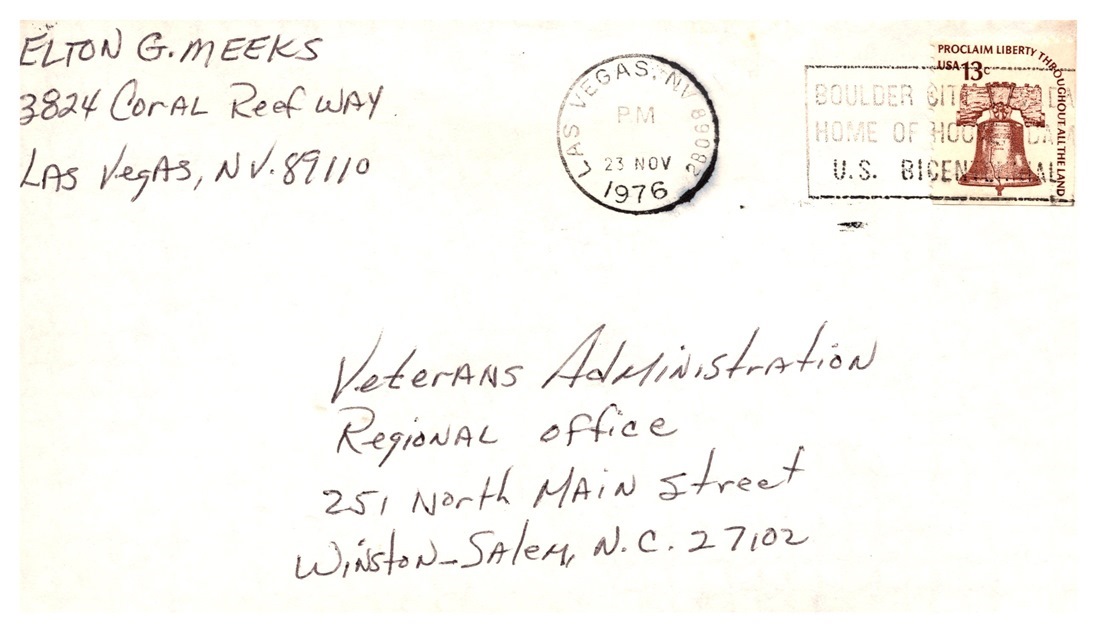 ELTON G. MEEKS
3824 Coral Reef Way
Las Vegas, NV. 89110
LAS VEGAS, NV 89082
PM
23 NOV
1976
BOULDER
HOME OF
U.S.
PROCLAIM LIBERTY THROUGHOUT ALL THE LAND
USA 13c
Veterans Administration
Regional office
251 North Main Street
Winston-Salem, N.C. 27102